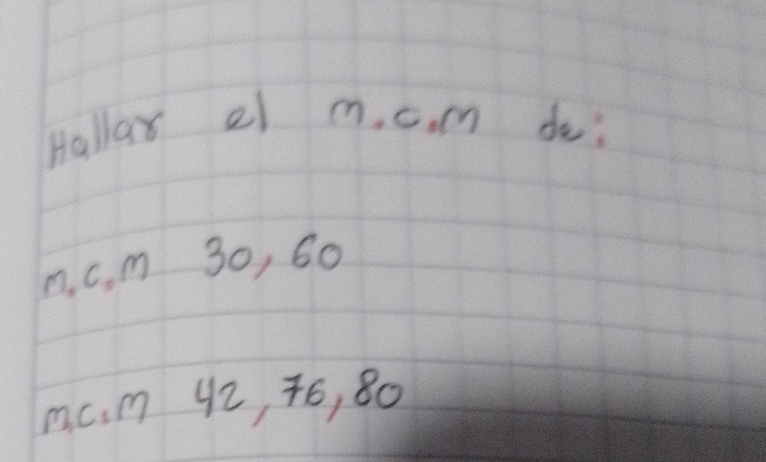 Hallar el m.c.m de:
m.c.m 30, 60
m.c.m 42, 76, 80